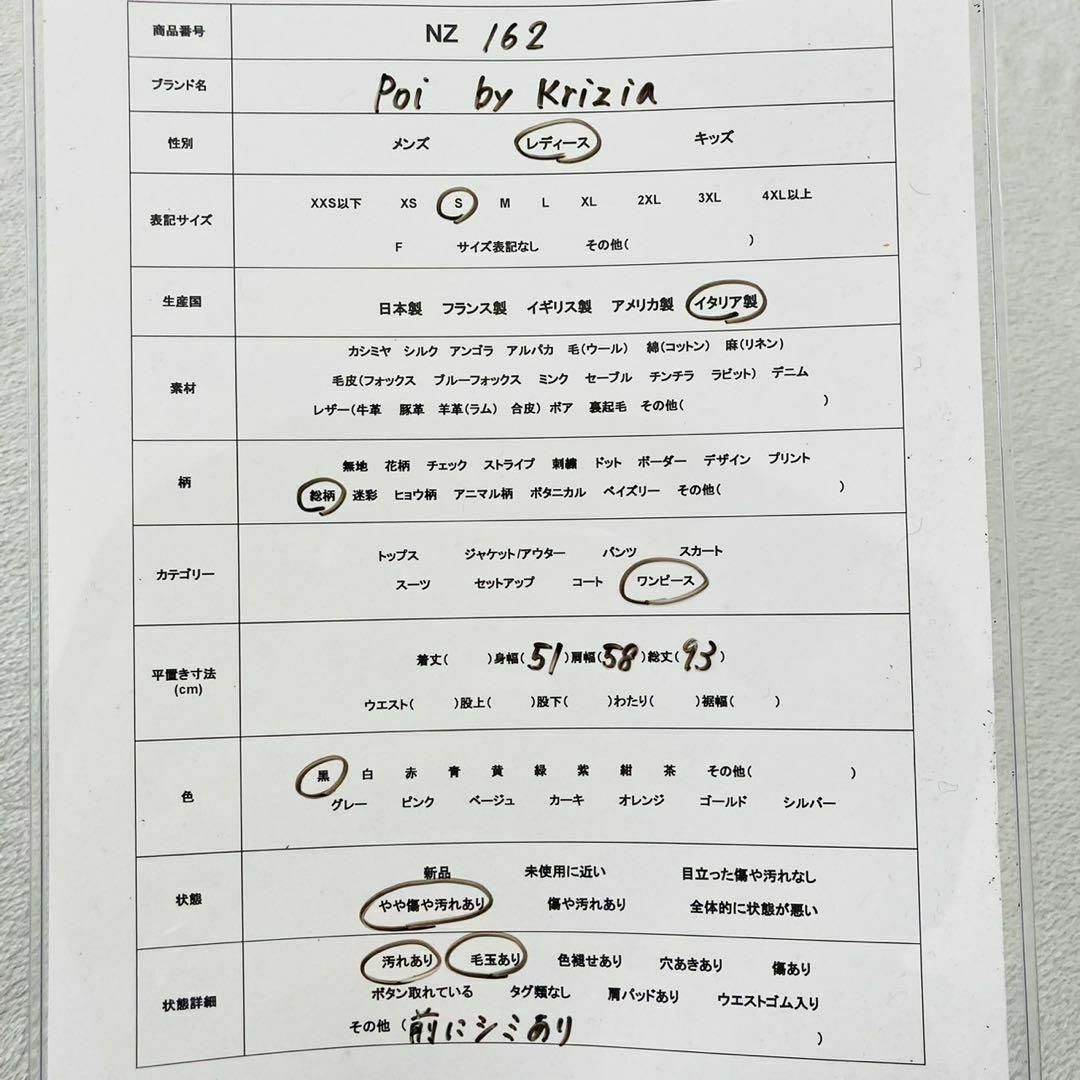 商品番号 NZ 162
ブランド名 Poi by Krizia
性別 メンズ レディース キッズ
表記サイズ
XXS以下 XS S M L XL 2XL 3XL 4XL以上
F サイズ表記なし その他( )
生産国 日本製 フランス製 イギリス製 アメリカ製 イタリア製
素材
カシミヤ シルク アンゴラ アルパカ 毛(ウール) 綿(コットン) 麻(リネン)
毛皮(フォックス ブルーフォックス ミンク セーブル チンチラ ラビット) デニム
レザー(牛革 豚革 羊革(ラム) 合皮) ボア 裏起毛 その他( )
柄
無地 花柄 チェック ストライプ 刺繍 ドット ボーダー デザイン プリント
総柄 迷彩 ヒョウ柄 アニマル柄 ボタニカル ペイズリー その他( )
カテゴリー
トップス ジャケット/アウター パンツ スカート
スーツ セットアップ コート ワンピース
平置き寸法
(cm)
着丈( )身幅(51)肩幅(58)総丈(93)
ウエスト( )股上( )股下( )わたり( )裾幅( )
色
黒 白 赤 青 黄 緑 紫 紺 茶 その他( )
グレー ピンク ベージュ カーキ オレンジ ゴールド シルバー
状態
新品 未使用に近い 目立った傷や汚れなし
やや傷や汚れあり 傷や汚れあり 全体的に状態が悪い
状態詳細
汚れあり 毛玉あり 色褪せあり 穴あきあり 傷あり
ボタン取れている タグ類なし 肩パッドあり ウエストゴム入り
その他 (前にシミあり )